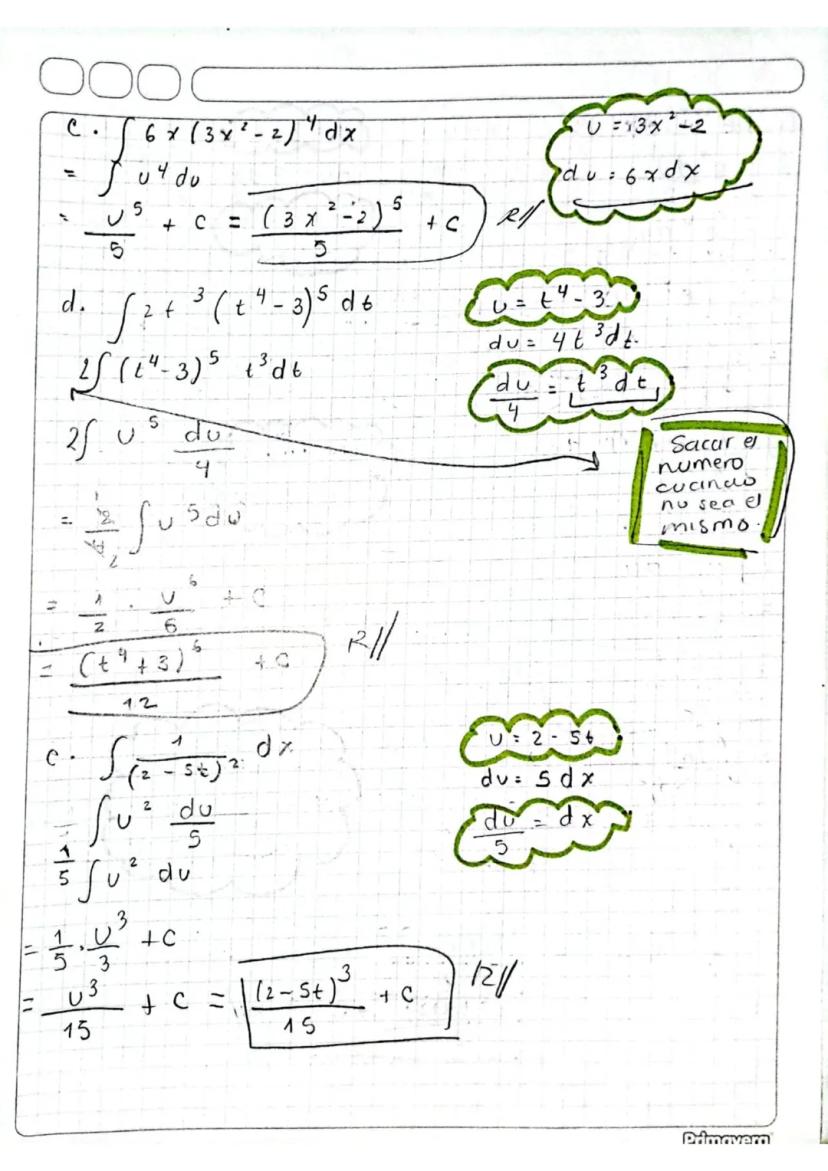 c. ∫ 6x (3x² - 2)⁴ dx
= ∫ u⁴ du
= u⁵/5 + c = (3x² - 2)⁵/5 + c R//
u = 3x² - 2
du = 6x dx
d. ∫ 2t³ (t⁴ - 3)⁵ dt
2∫ (t⁴ - 3)⁵ t³ dt
2∫ u⁵ du/4
= 2/4 2 ∫ u⁵ du
= 1/2 · u⁶/6 + c
= (t⁴ + 3)⁶/12 + c R//
u = t⁴ - 3
du = 4t³ dt
du/4 = t³ dt
Sacar el
numero
cuando
no sea el
mismo.
c. ∫ 1/(2 - 5t)² dx
= ∫ u² du/5
1/5 ∫ u² du
= 1/5 · u³/3 + c
= u³/15 + c = (2 - 5t)³/15 + c R//
u = 2 - 5t
du = 5 dx
du/5 = dx
Primavera